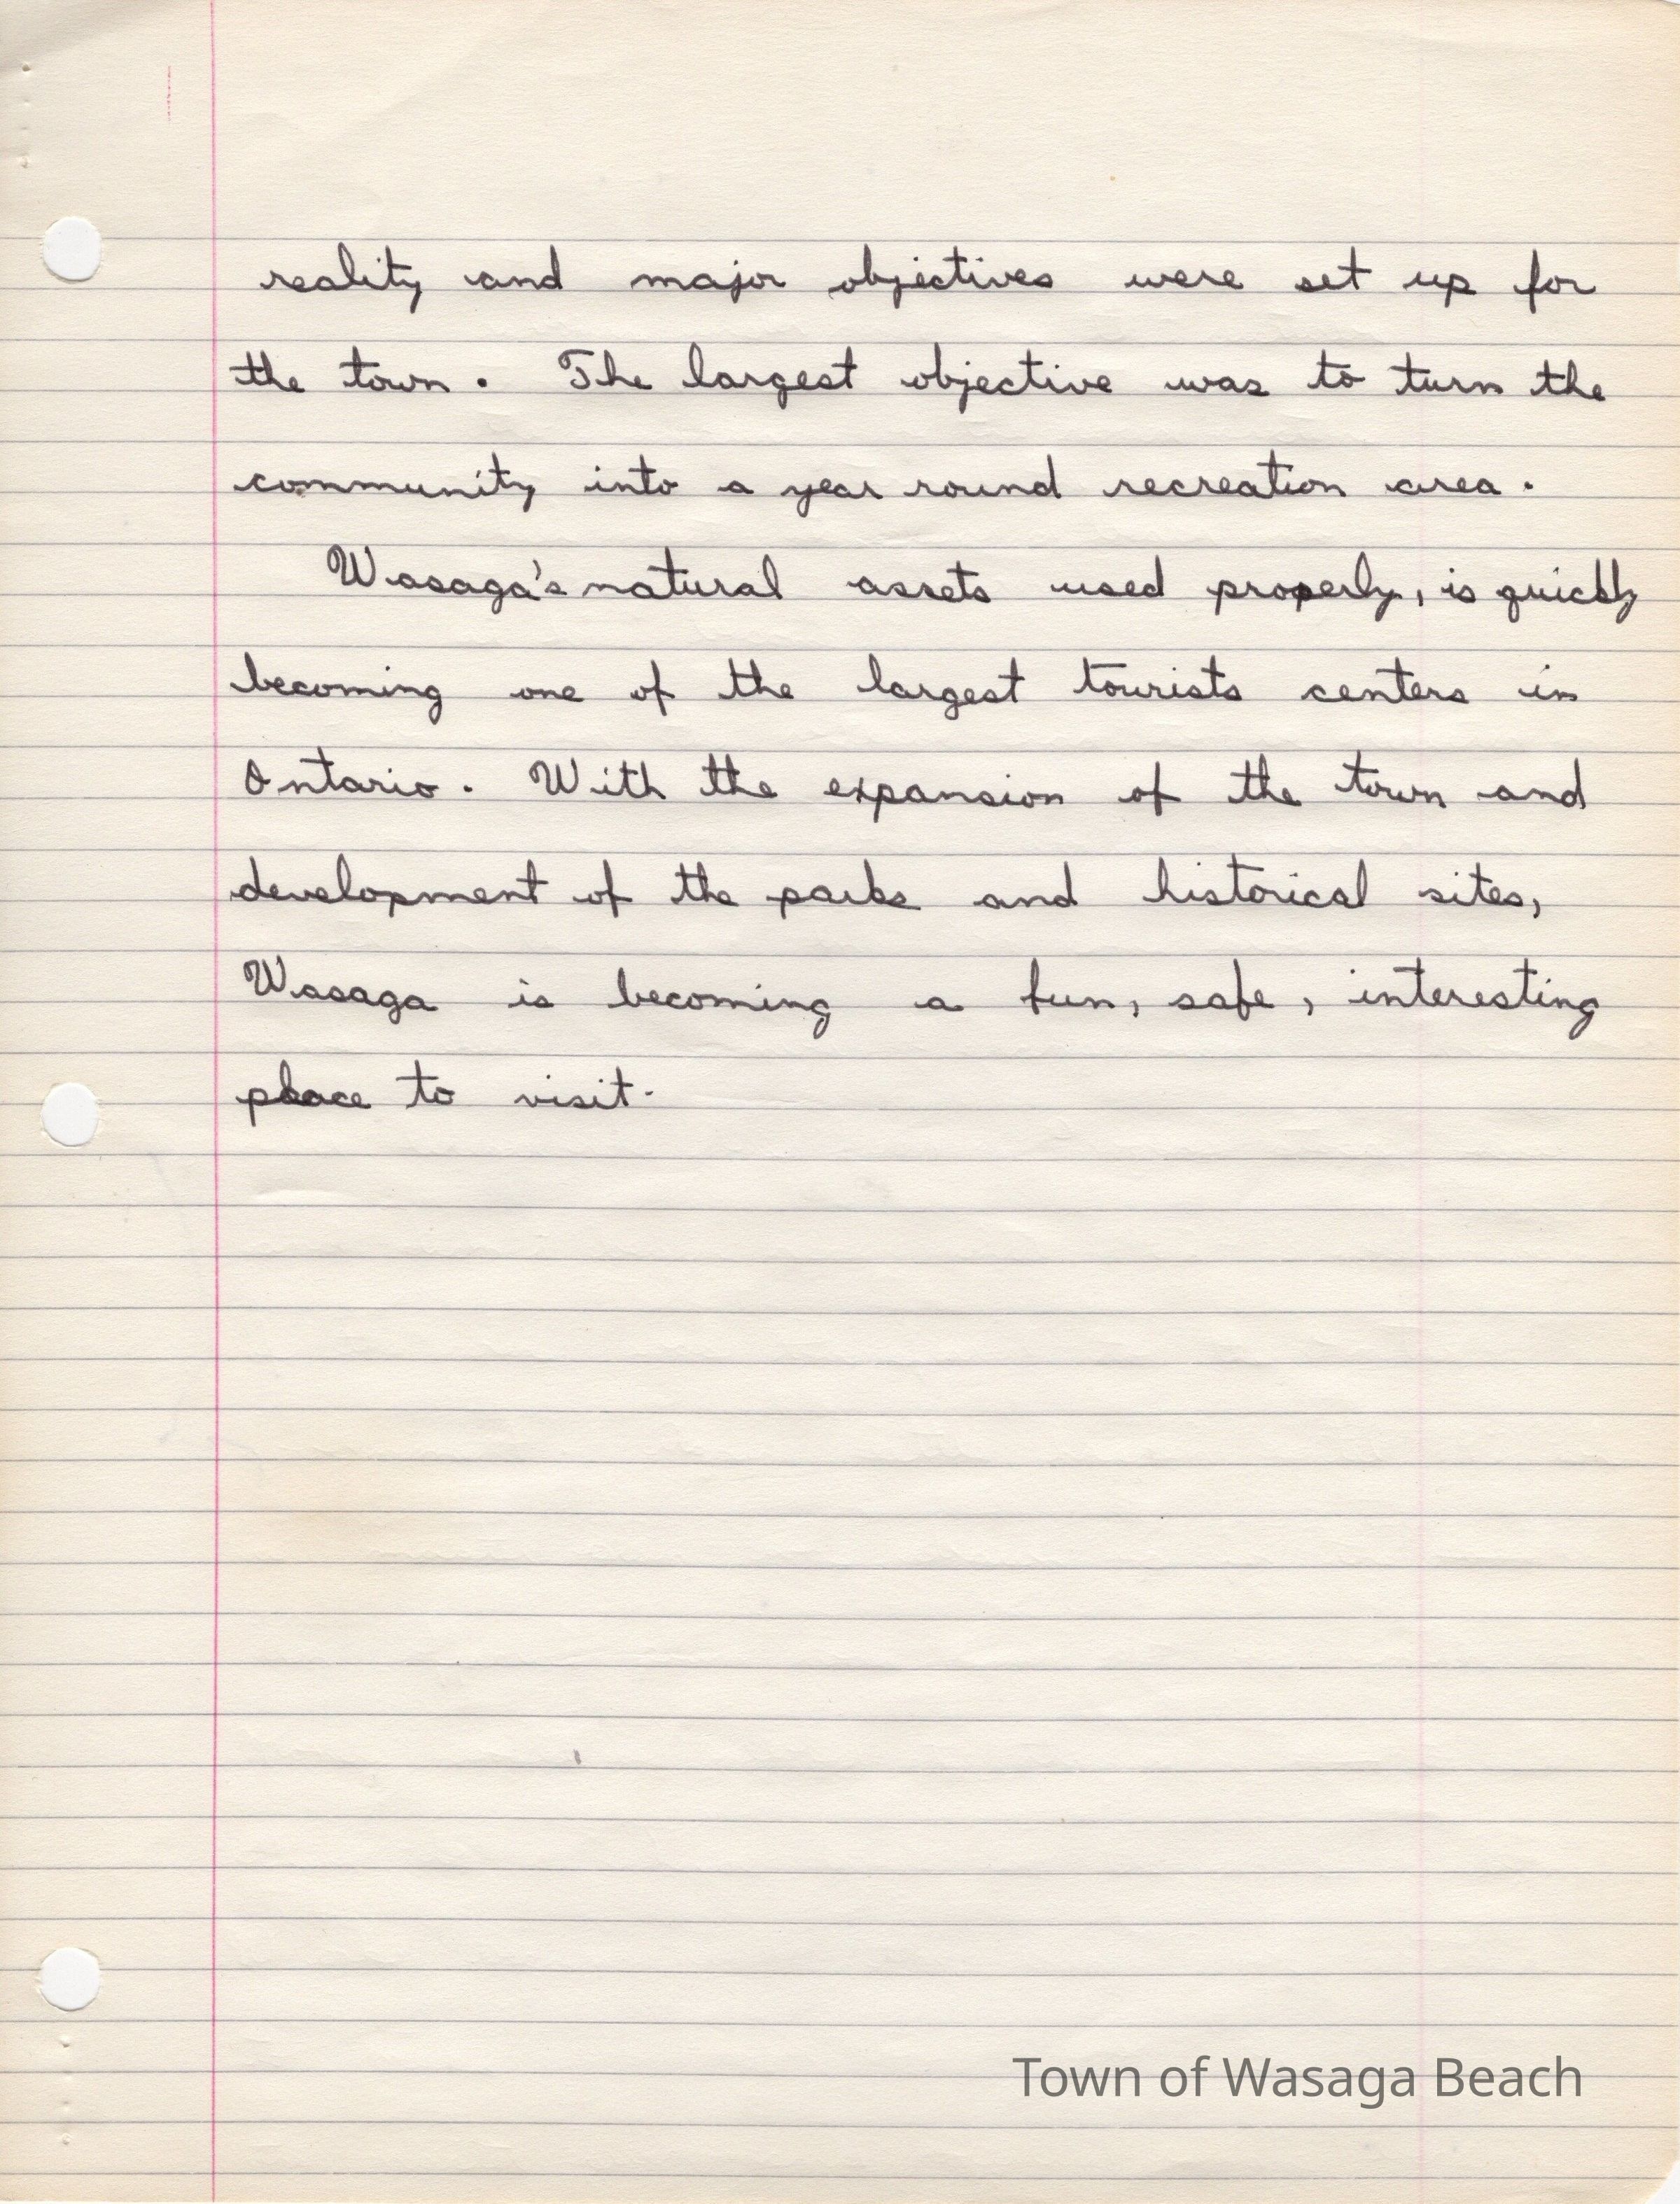 reality and major objectives were set up for
the town. The largest objective was to turn the
community into a year round recreation area.
Wasaga's natural assets used properly, is quickly
becoming one of the largest tourists centers in
Ontario. With the expansion of the town and
development of the parks and historical sites,
Wasaga is becoming a fun, safe, interesting
place to visit.
Town of Wasaga Beach